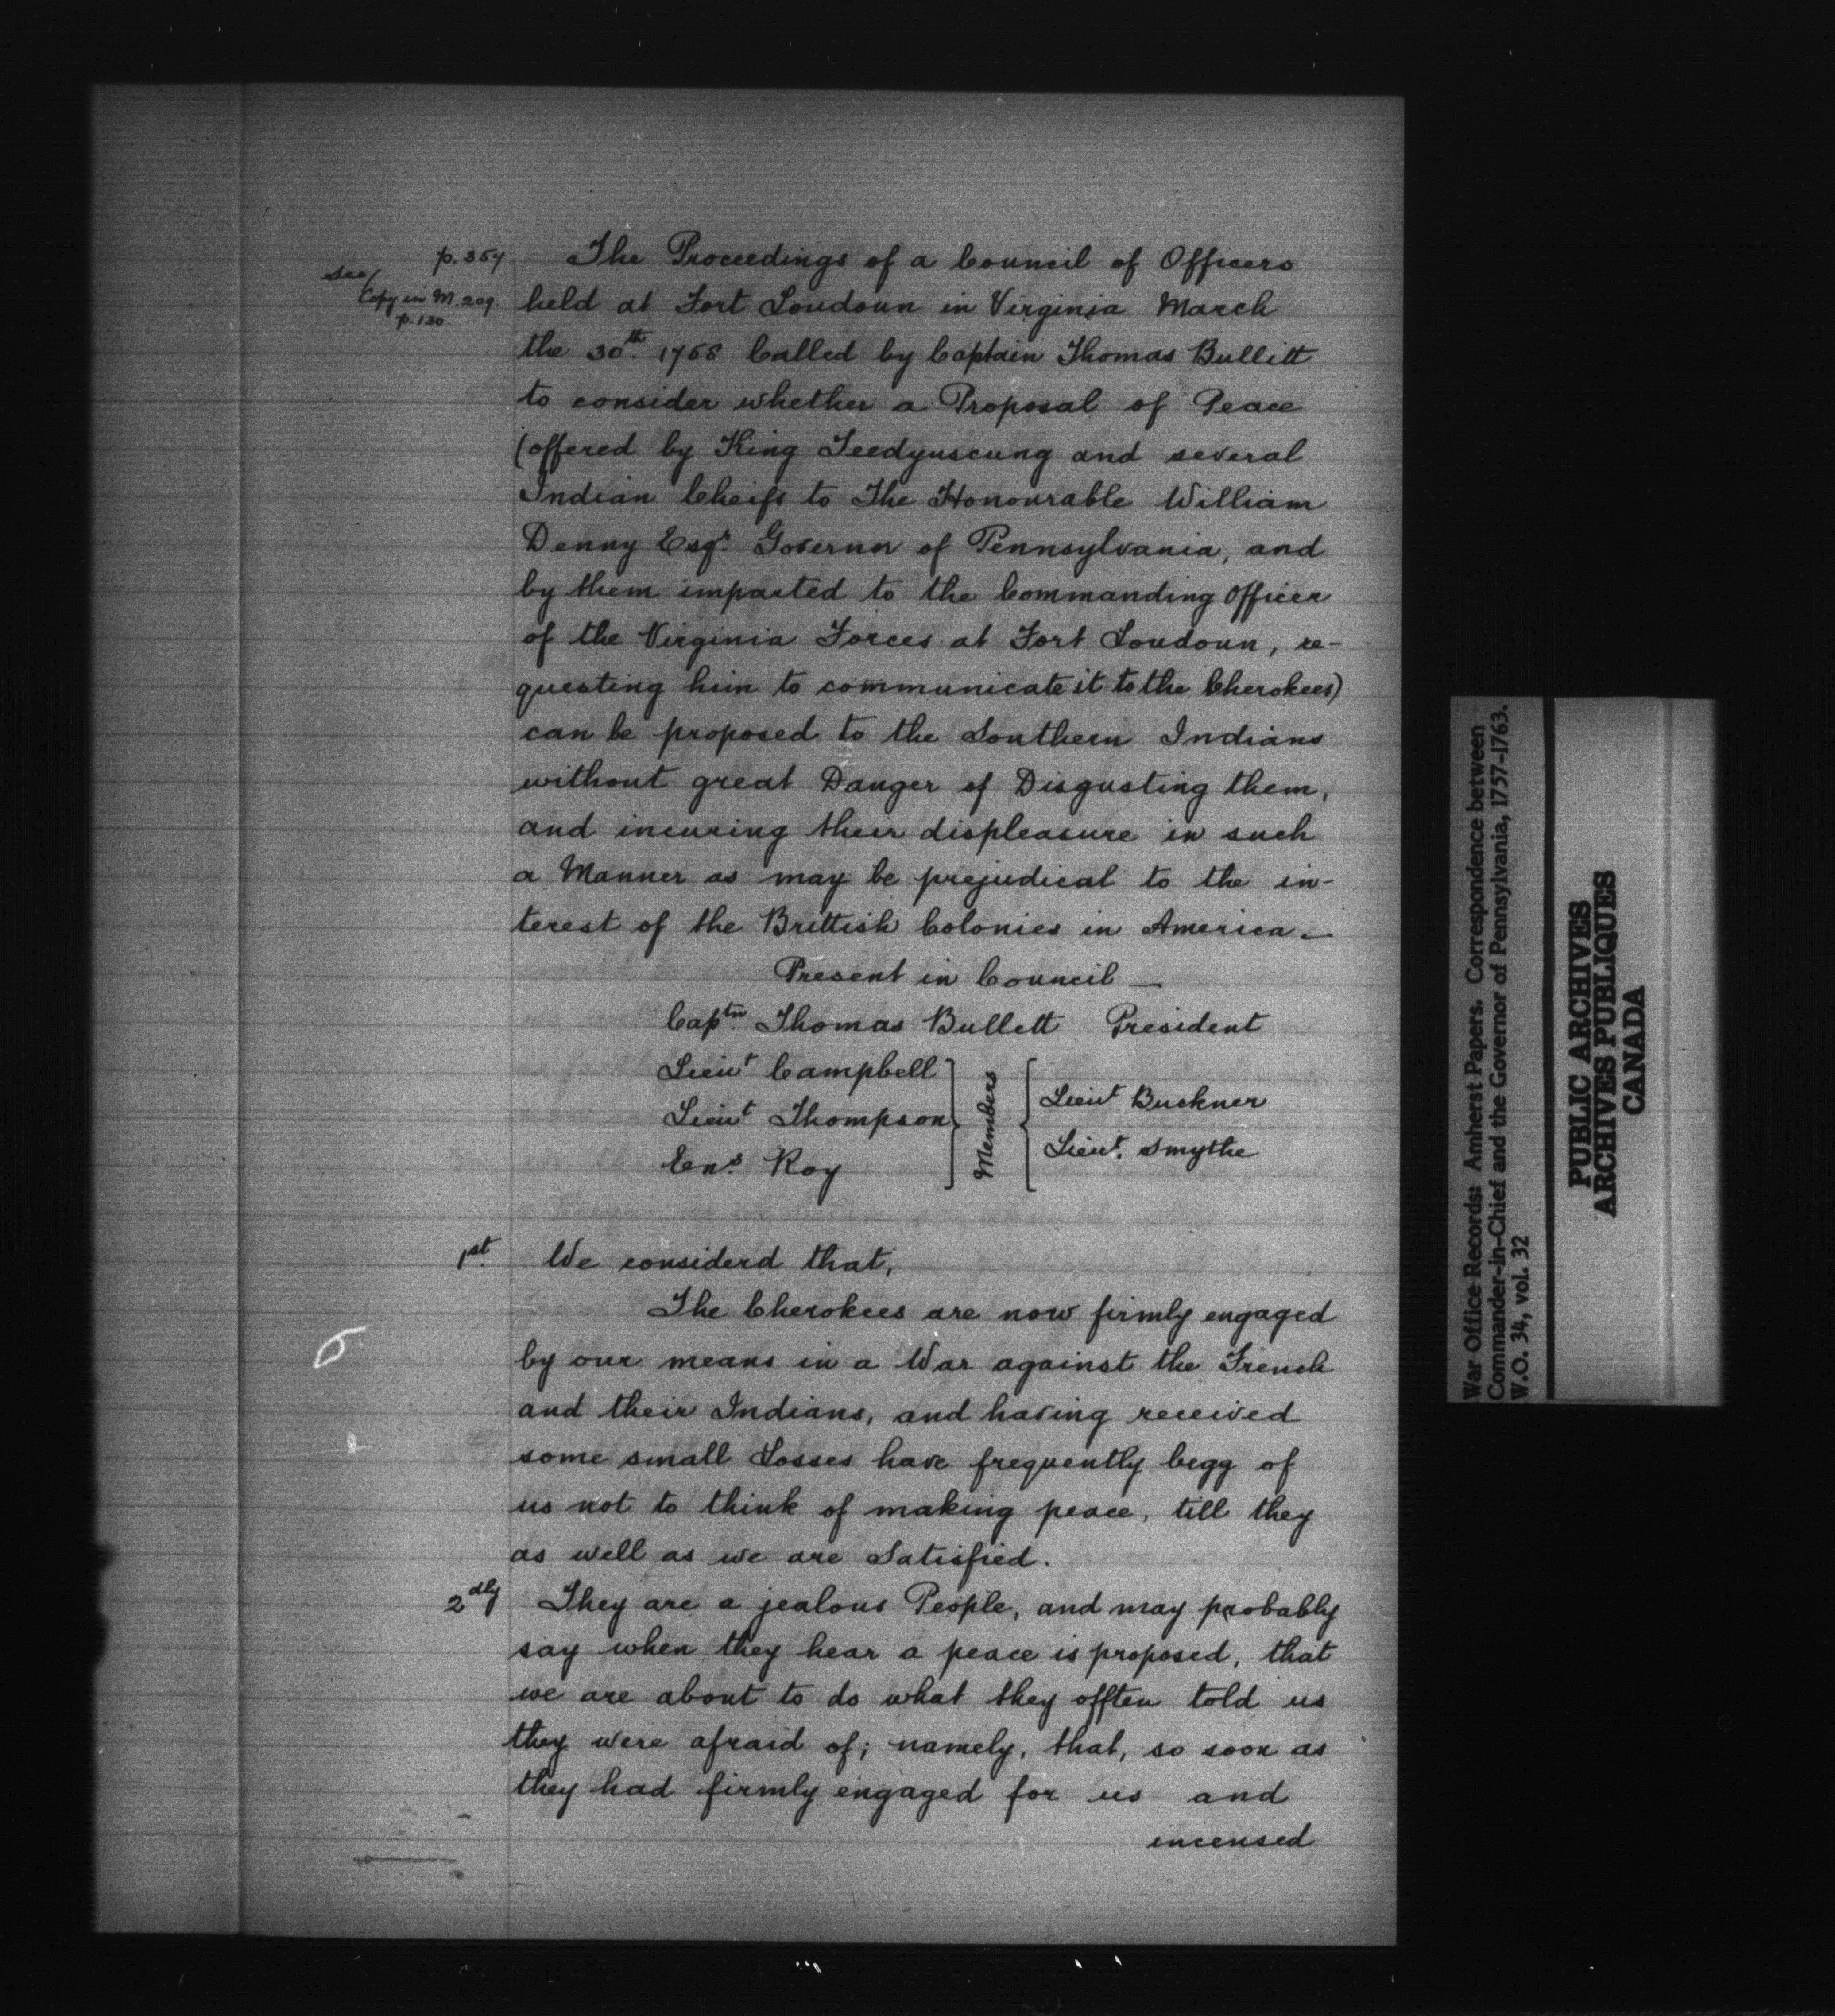 p. 354
see
Copy in M. 209
p. 130.
The Proceedings of a Council of Officers
held at Fort Loudoun in Virginia March
the 30th. 1758 Called by Captain Thomas Bullitt
to consider whether a Proposal of Peace
(offered by King Teedyuscung and several
Indian Cheifs to The Honourable William
Denny Esqr. Governor of Pennsylvania, and
by them imparted to the Commanding Officer
of the Virginia Forces at Fort Loudoun, re-
questing him to communicate it to the Cherokees)
can be proposed to the Southern Indians
without great Danger of Disgusting them,
and incuring their displeasure in such
a Manner as may be prejudical to the in-
terest of the Brittish Colonies in America.—
Present in Council —
Captn. Thomas Bullett President
Lieut Campbell
Lieut Thompson
Ens. Roy
Members
Lieut Buckner
Lieut. Smythe
1st. We considerd that,
The Cherokees are now firmly engaged
by our means in a War against the French
and their Indians, and having received
some small Losses have frequently begg of
us not to think of making peace, till they
as well as we are Satisfied.
2dly They are a jealous People, and may probably
say when they hear a peace is proposed, that
we are about to do what they offten told us
they were afraid of; namely, that, so soon as
they had firmly engaged for us and
incensed
War Office Records: Amherst Papers. Correspondence between
Commander-in-Chief and the Governor of Pennsylvania, 1757-1763.
W.O. 34, vol. 32
PUBLIC ARCHIVES
ARCHIVES PUBLIQUES
CANADA